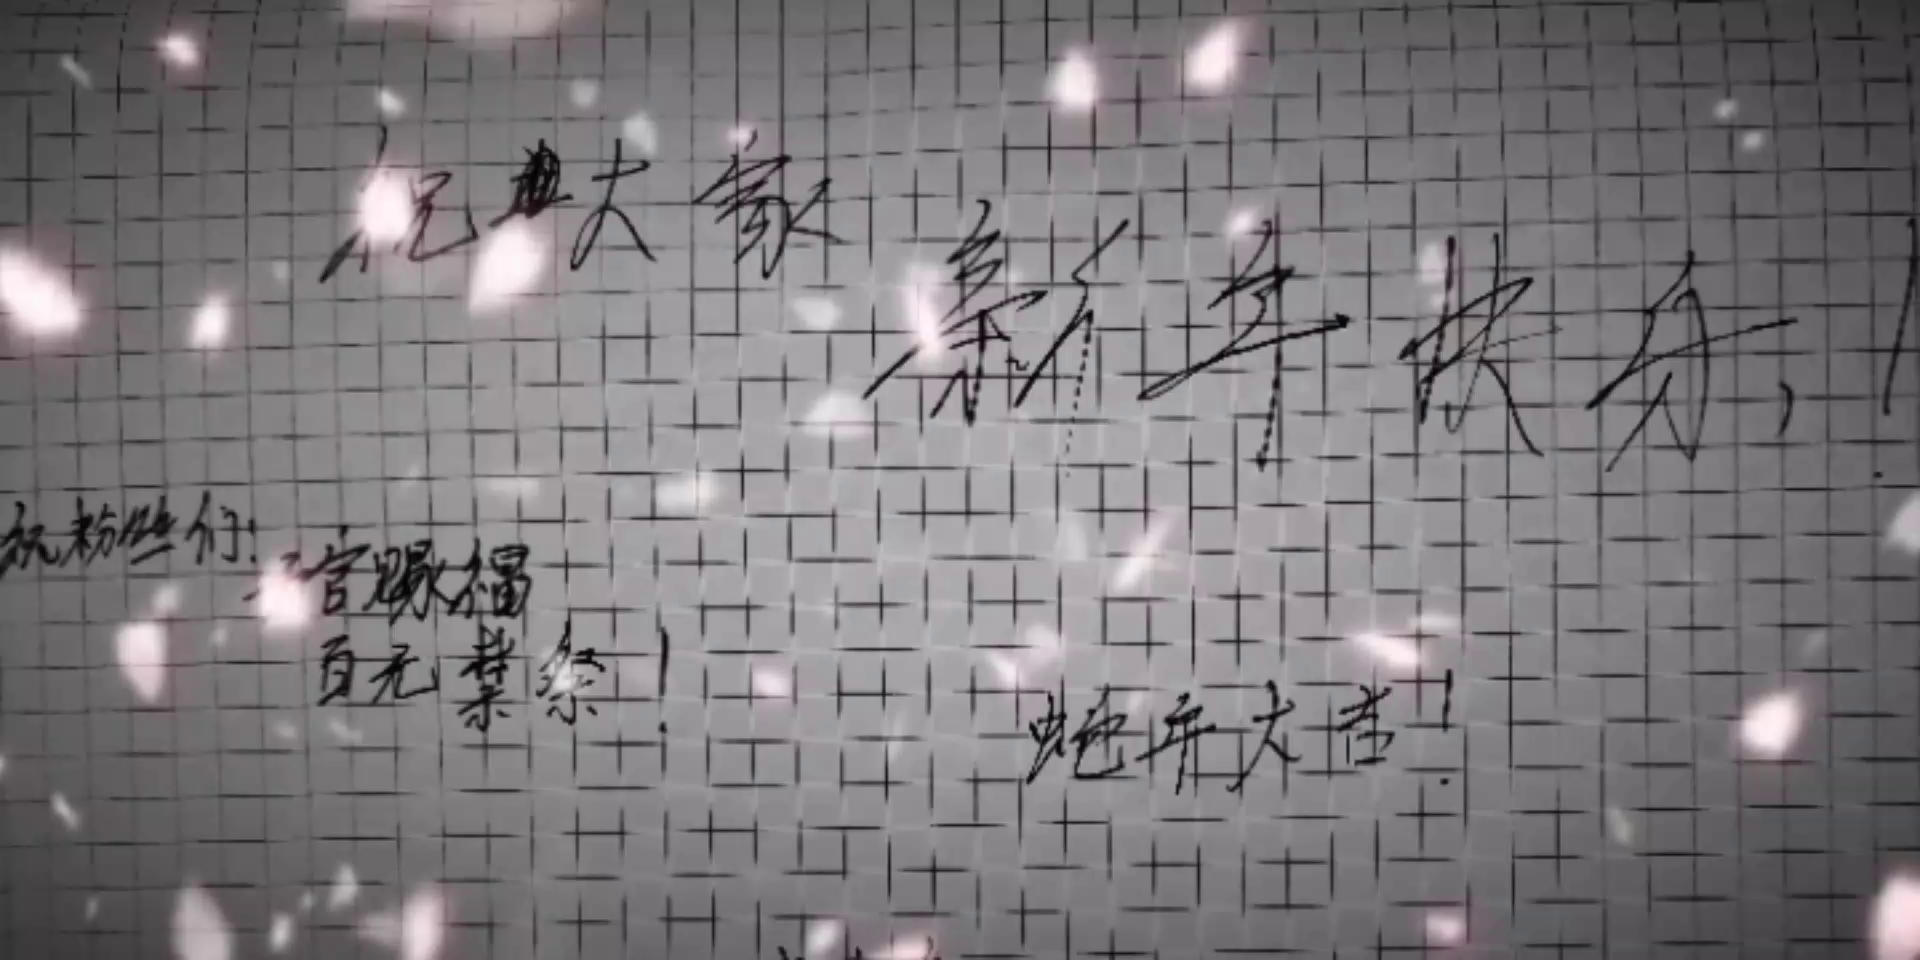 祝大家
新年快乐!
祝粉丝们!
天官赐福
百无禁!
蛇年大吉!